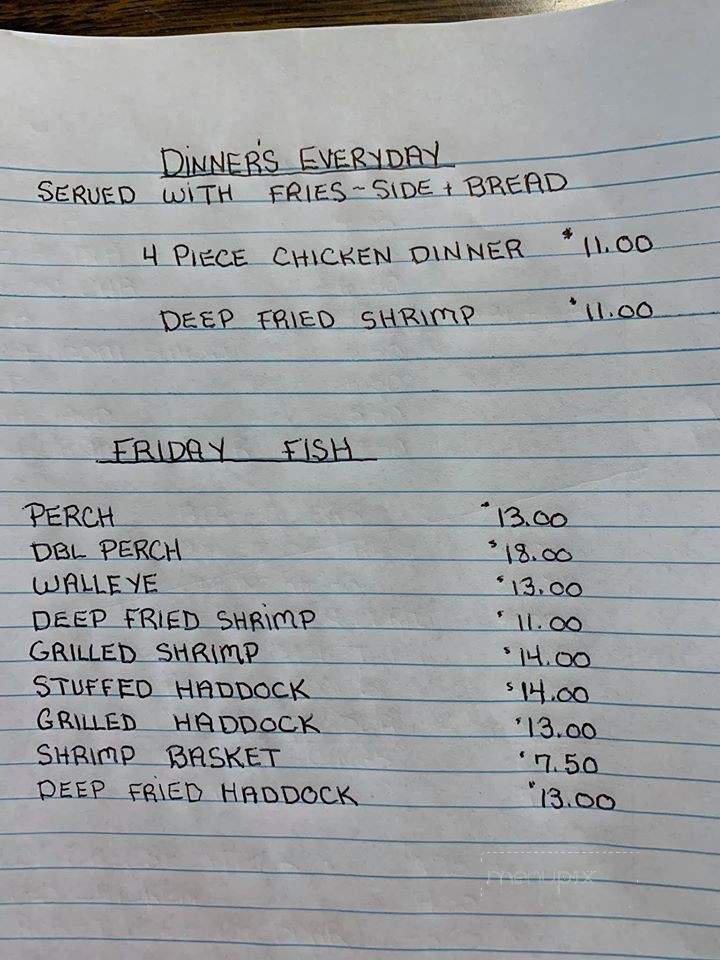 DINNER'S EVERYDAY
SERVED WITH FRIES ~ SIDE + BREAD
4 PIECE CHICKEN DINNER $11.00
DEEP FRIED SHRIMP $11.00
FRIDAY FISH
PERCH $13.00
DBL PERCH $18.00
WALLEYE $13.00
DEEP FRIED SHRIMP $11.00
GRILLED SHRIMP $14.00
STUFFED HADDOCK $14.00
GRILLED HADDOCK $13.00
SHRIMP BASKET $7.50
DEEP FRIED HADDOCK $13.00
menupix